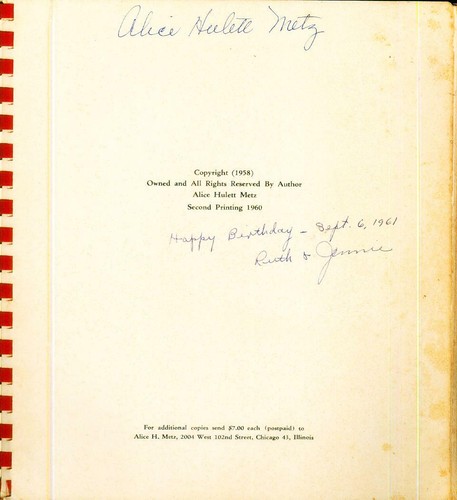 Alice Hulett Metz
Copyright (1958)
Owned and All Rights Reserved By Author
Alice Hulett Metz
Second Printing 1960
Happy Birthday - Sept. 6, 1961
Ruth & Jennie
For additional copies send $7.00 each (postpaid) to
Alice H. Metz, 2004 West 102nd Street, Chicago 43, Illinois